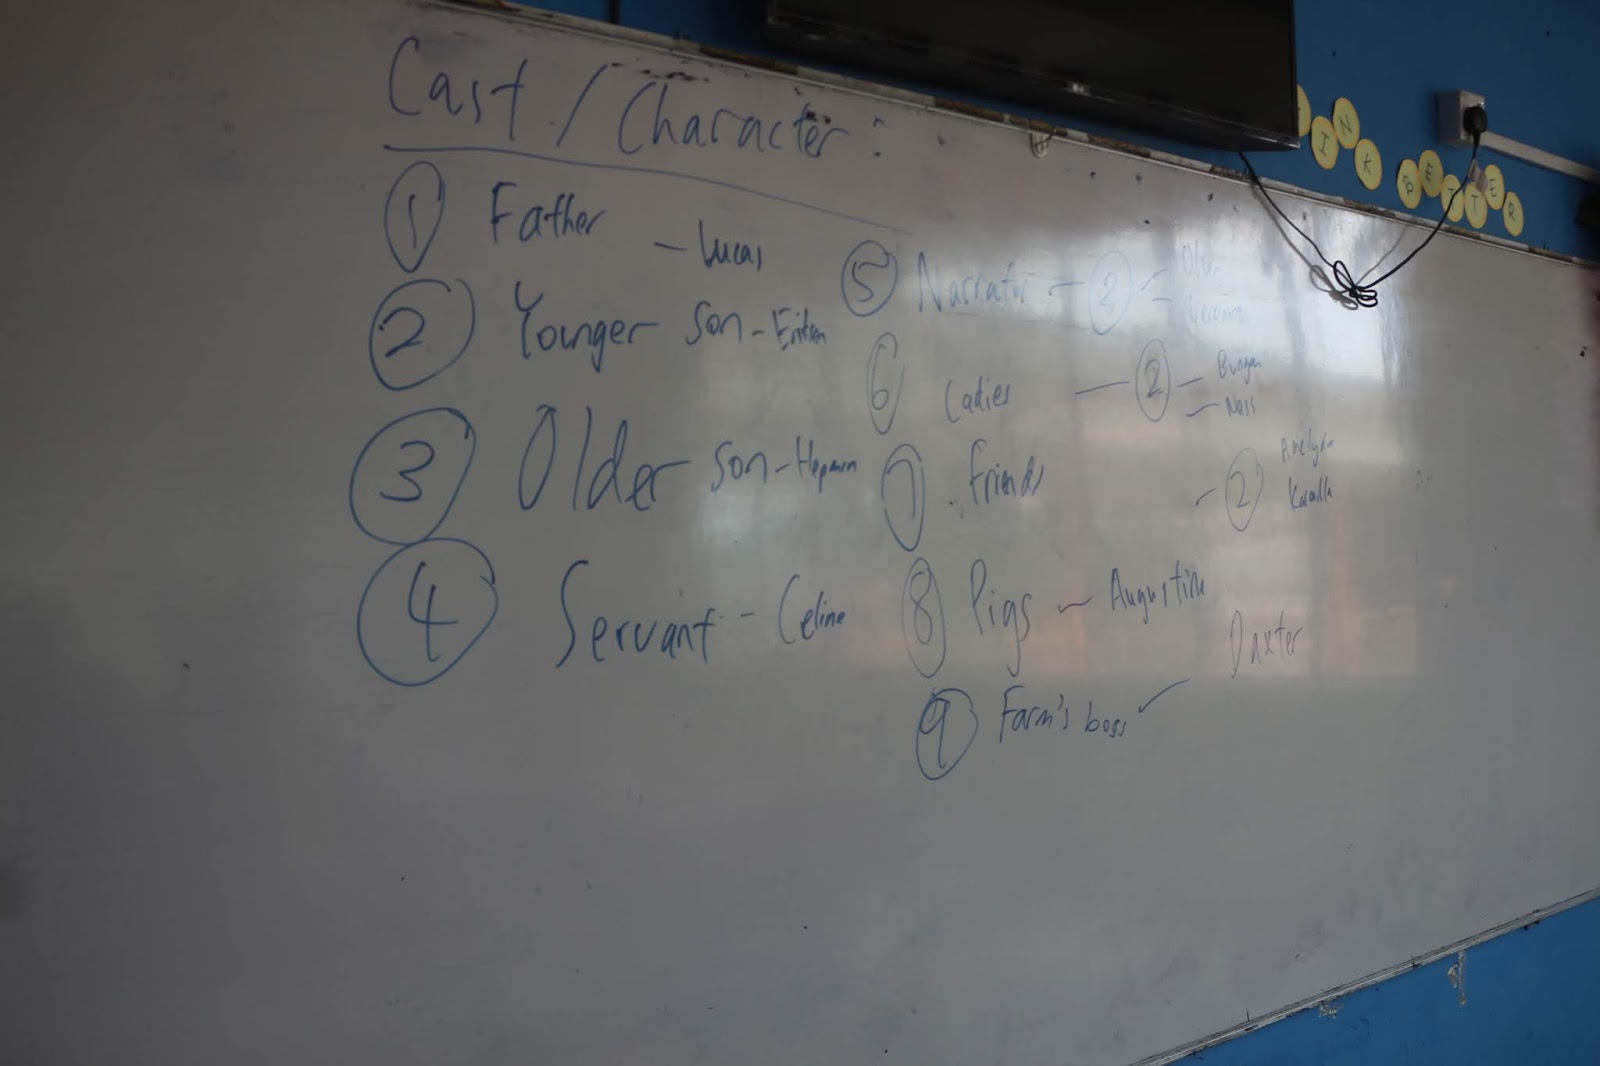 Cast / Character :
① Father - Lucas
② Younger son -
③ Older son -
④ Servant - Celine
⑤ Narrator - ②
⑥ Ladies - ② - Bungan
- Ness
⑦ Friends - ②
⑧ Pigs - Augustine
⑨ Farm's boss - Daxter
INK BETTER